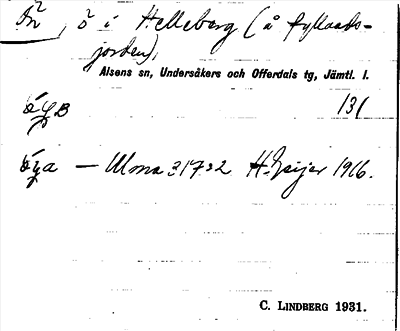 Ön, ö i Helleberg (å fyllands-
jorden),
Alsens sn, Undersåkers och Offerdals tg, Jämtl. l.
131
— Ulma 31732 H. Geijer 1916.
C. LINDBERG 1931.